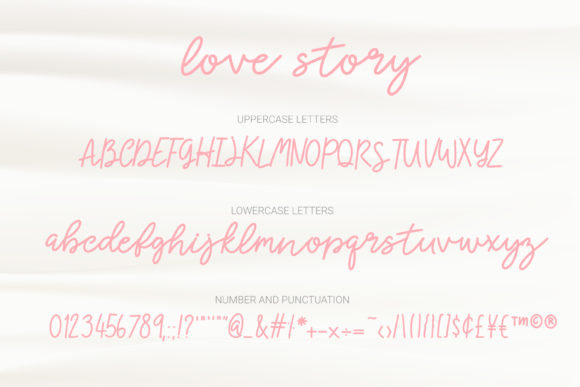 love story
UPPERCASE LETTERS
ABCDEFGHIJKLMNOPQRSTUVWXYZ
LOWERCASE LETTERS
abcdefghijklmnopqrstuvwxyz
NUMBER AND PUNCTUATION
0123456789,.:;!?'"'""@_&#%*+-x÷=~‹›/\()|{}[]$¢£¥€™©®